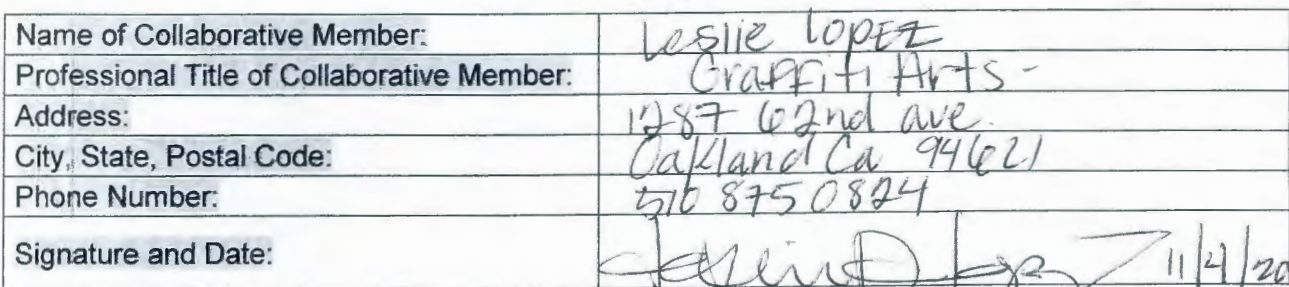 Name of Collaborative Member: Leslie Lopez
Professional Title of Collaborative Member: Graffiti Arts -
Address: 1287 62nd ave.
City, State, Postal Code: Oakland Ca 94621
Phone Number: 510 875 0824
Signature and Date: 11/4/20